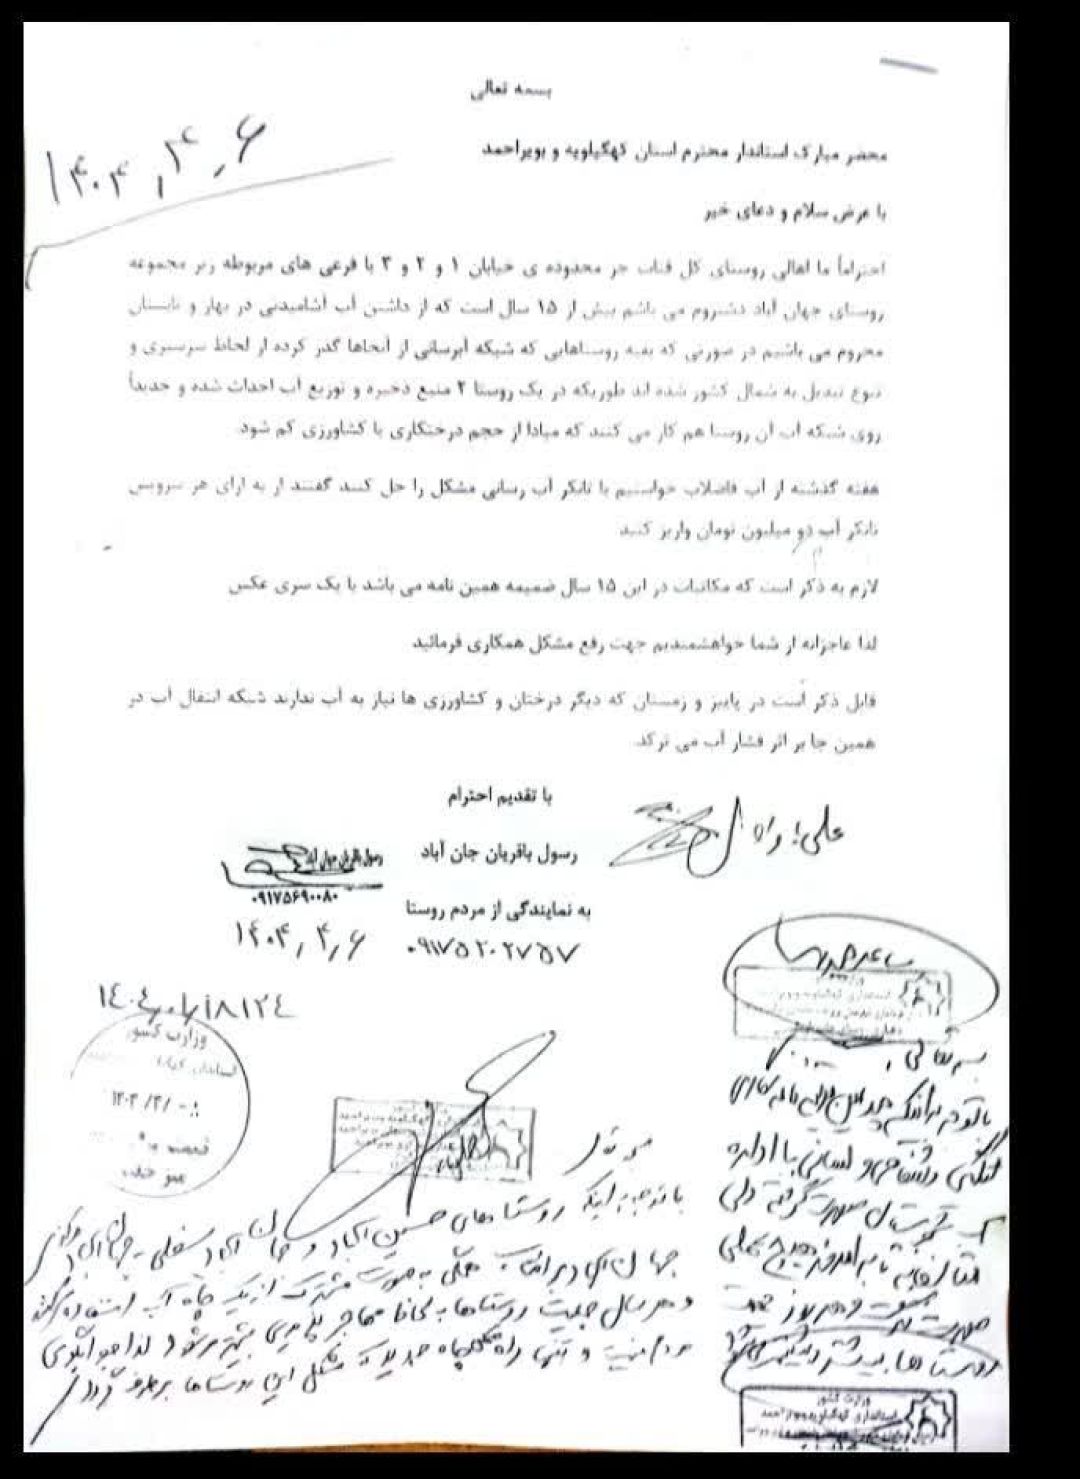 بسمه تعالی
۱۴۰۴,۴,۶
محضر مبارک استاندار محترم استان کهگیلویه و بویراحمد
با عرض سلام و دعای خیر
احتراماً ما اهالی روستای کل قنات جر محدوده ی خیابان ۱ و ۲ و ۳ با فرعی های مربوطه زیر مجموعه
روستای جهان آباد دشتروم می باشم بیش از ۱۵ سال است که از داشتن آب آشامیدنی در بهار و تابستان
محروم می باشیم در صورتی که بقیه روستاهایی که شبکه آبرسانی از آنجاها گذر کرده از لحاظ سرسبزی و
تنوع تبدیل به شمال کشور شده اند طوریکه در یک روستا ۲ منبع ذخیره و توزیع آب احداث شده و جدیداً
روی شبکه آب آن روستا هم کار می کنند که مبادا از حجم درختکاری یا کشاورزی کم شود.
هفته گذشته از آب فاضلاب خواستیم با تانکر آب رسانی مشکل را حل کنند گفتند از به ازای هر سرویس
تانکر آب دو میلیون تومان واریز کنید
لازم به ذکر است که مکاتبات در این ۱۵ سال ضمیمه همین نامه می باشد با یک سری عکس
لذا عاجزانه از شما خواهشمندیم جهت رفع مشکل همکاری فرمائید
قابل ذکر است در پاییز و زمستان که دیگر درختان و کشاورزی ها نیاز به آب ندارند شبکه انتقال آب در
همین جا بر اثر فشار آب می ترکد.
با تقدیم احترام
رسول باقریان جان آباد
به نمایندگی از مردم روستا
۰۹۱۷۵۲۰۲۷۵۷
۰۹۱۷۵۶۹۰۰۸۰
۱۴۰۴,۴,۶
وزارت کشور
بسمه تعالی
با توجه به اینکه روستاهای حسین آباد و
جهان آباد محلی به صورت مشترک از یک چاه آب استفاده
و هر سال جمعیت روستاها به لحاظ مهاجر پذیری بیشتر میشود لذا جوابگوی
مردم نیست و تنها راه چاه جدید که مشکل این روستاها برطرف گردد
وزارت کشور
استانداری کهگیلویه و بویراحمد